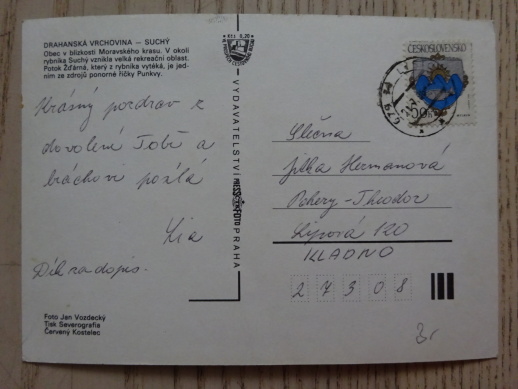 DRAHANSKÁ VRCHOVINA – SUCHÝ
Obec v blízkosti Moravského krasu. V okolí
rybníka Suchý vznikla velká rekreační oblast.
Potok Žďárná, který z rybníka vytéká, je jed-
ním ze zdrojů ponorné říčky Punkvy.
Krásný pozdrav z
dovolení Tobě a
bráchovi posílá
Lia
Dík za dopis.
Foto Jan Vozdecký
Tisk Severografia
Červený Kostelec
Kčs 0,20
VYDAVATELSTVÍ PRESSFOTO PRAHA
ČESKOSLOVENSKO
679
Slečna
Jitka Hermanová
Pchery-Theodor
Lipová 120
KLADNO
27308